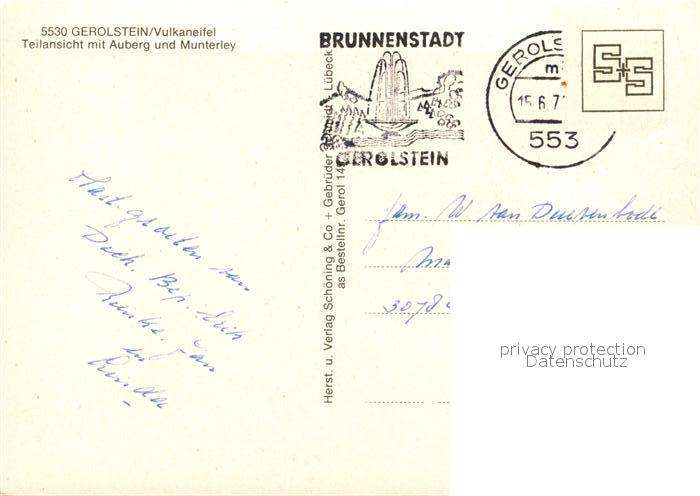 5530 GEROLSTEIN/Vulkaneifel
Teilansicht mit Auberg und Munterley
BRUNNENSTADT
GEROLSTEIN
GEROLS
15.6.7
553
S+S
Herst. u. Verlag Schöning & Co + Gebrüder Schmidt, Lübeck
as Bestellnr. Gerol 14
Hart. groeten van
Dick. Bep.
Rienkie. Jan
en
Fam. W van Duesenbode
Ma
3078
privacy protection
Datenschutz